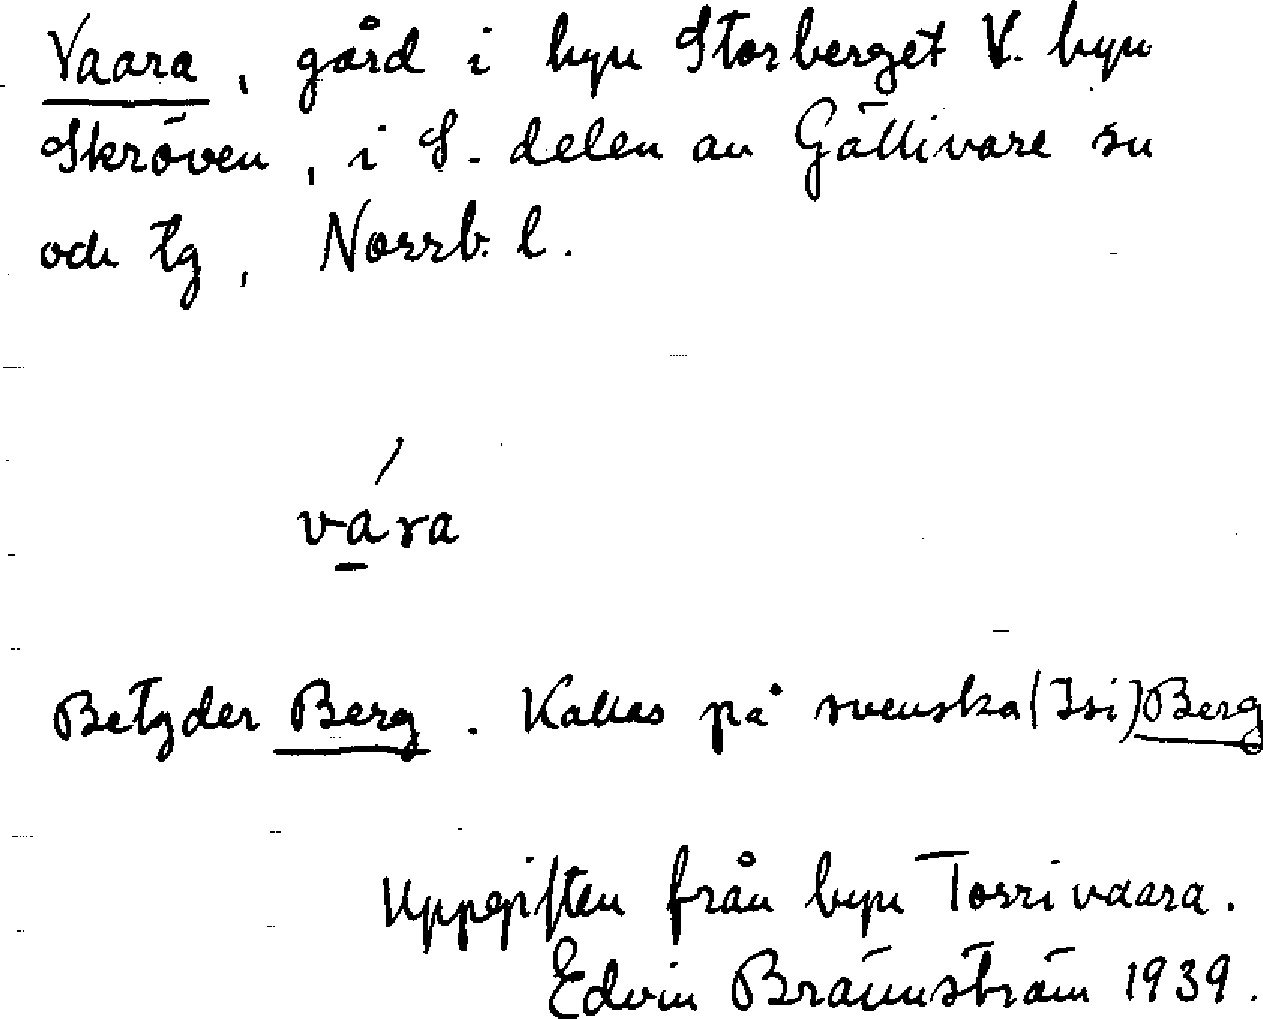 Vaara, gård i byn Storberget V. byn
Skröven, i S. delen av Gällivare sn
och tg, Norrb. l.
vára
Betyder Berg. Kallas på svenska (Isi) Berg
Uppgiften från byn Torrivaara.
Edvin Brännström 1939.